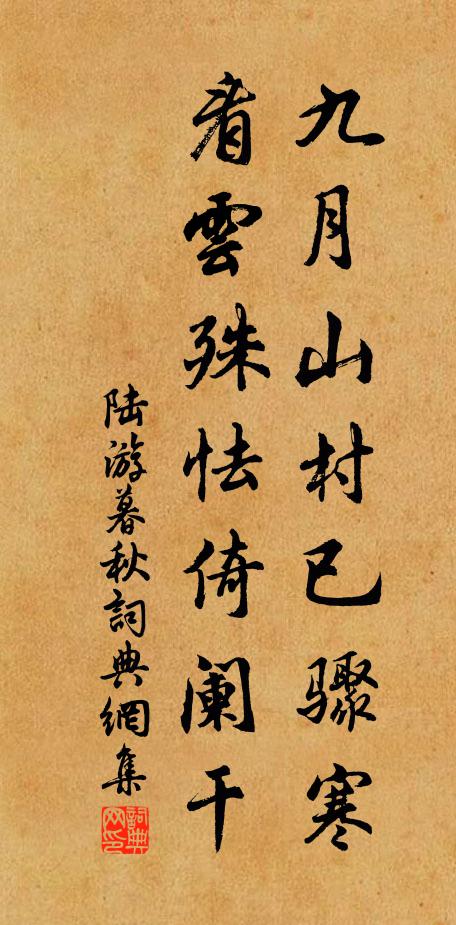 九月山村已骤寒
看雲殊怯倚阑干
陆游暮秋詞典網集
詞典网印